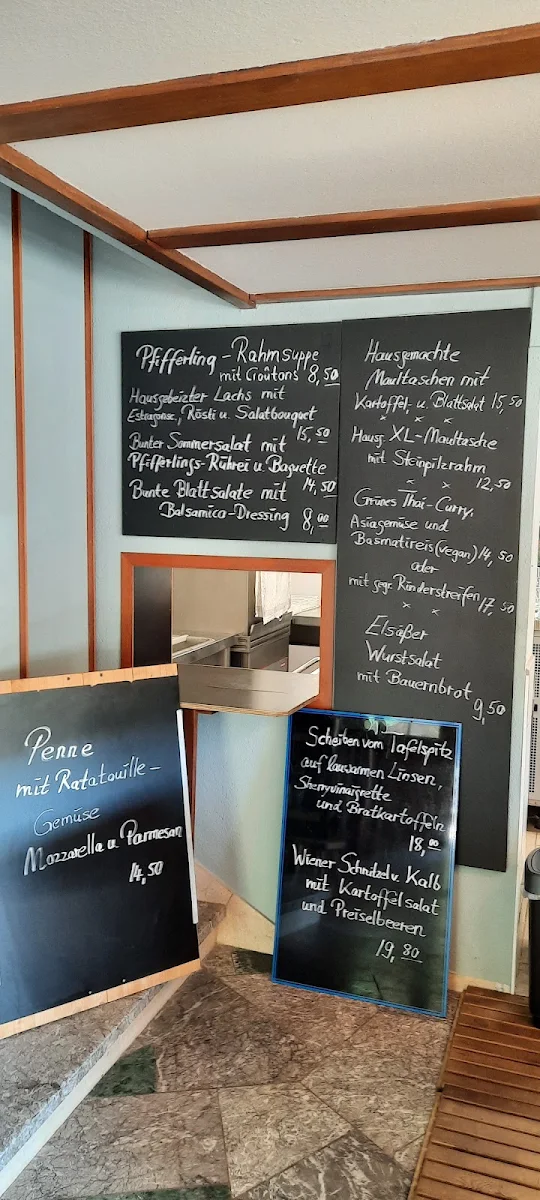 Pfifferling-Rahmsuppe
mit Croûtons 8,50
Hausgebeizter Lachs mit
Rösti u. Salatbouquet
15,50
Bunter Sommersalat mit
Pfifferlings-Rührei u Baguette
14,50
Bunte Blattsalate mit
Balsamica-Dressing 8,00
Hausgemachte
Maultaschen mit
Kartoffel- u. Blattsalat 15,50
x x x
Hausg. XL-Maultasche
mit Steinpilzrahm
x x 12,50
Grünes Thai-Curry,
Asiagemüse und
Basmatireis (vegan) 14,50
oder
mit gegr. Rinderstreifen 17,50
x x
Elsäßer
Wurstsalat
mit Bauernbrot
9,50
Penne
mit Ratatouille-
Gemüse
Mozzarella u Parmesan
14,50
Scheiben vom Tafelspitz
auf lauwarmen Linsen,
Sherryvinaigrette
und Bratkartoffeln
18,00
Wiener Schnitzel v. Kalb
mit Kartoffelsalat
und Preiselbeeren
19,80